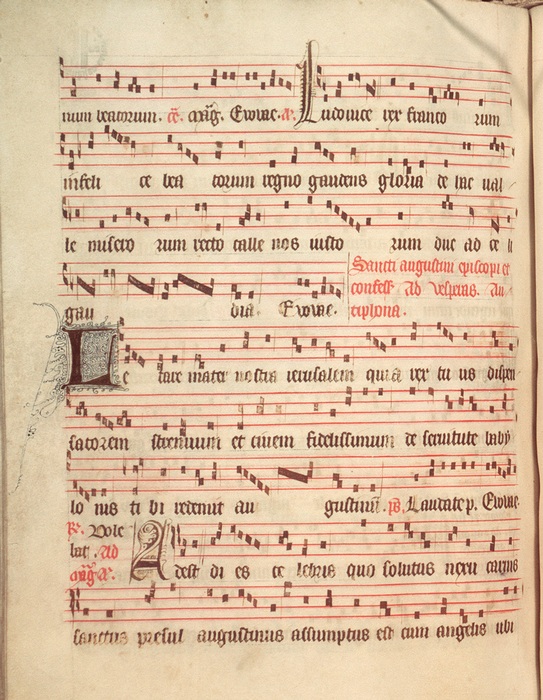 num beatorum. cē. mag̃. Evvae. a. Ludovice rex franco rum
infeli ce bea torum regno gaudens gloria de hac val
le misero rum recto calle nos iusto rum duc ad ce li
gau dia. Evvae. Sancti augustini episcopi et
confess. Ad vesperas. An
tiphona.
Le tare mater nostra ierusalem quia rex tu us dispen
satorem strenuum et civem fidelissimum de servitute baby
lo nis ti bi redemit au gustinū. ps. Laudate p. Evvae.
R. Vole
bat. Ad Adest di es ce lebris quo solutus nexu carnis
mag̃. a.
sanctus presul augustinus assumptus est cum angelis ubi